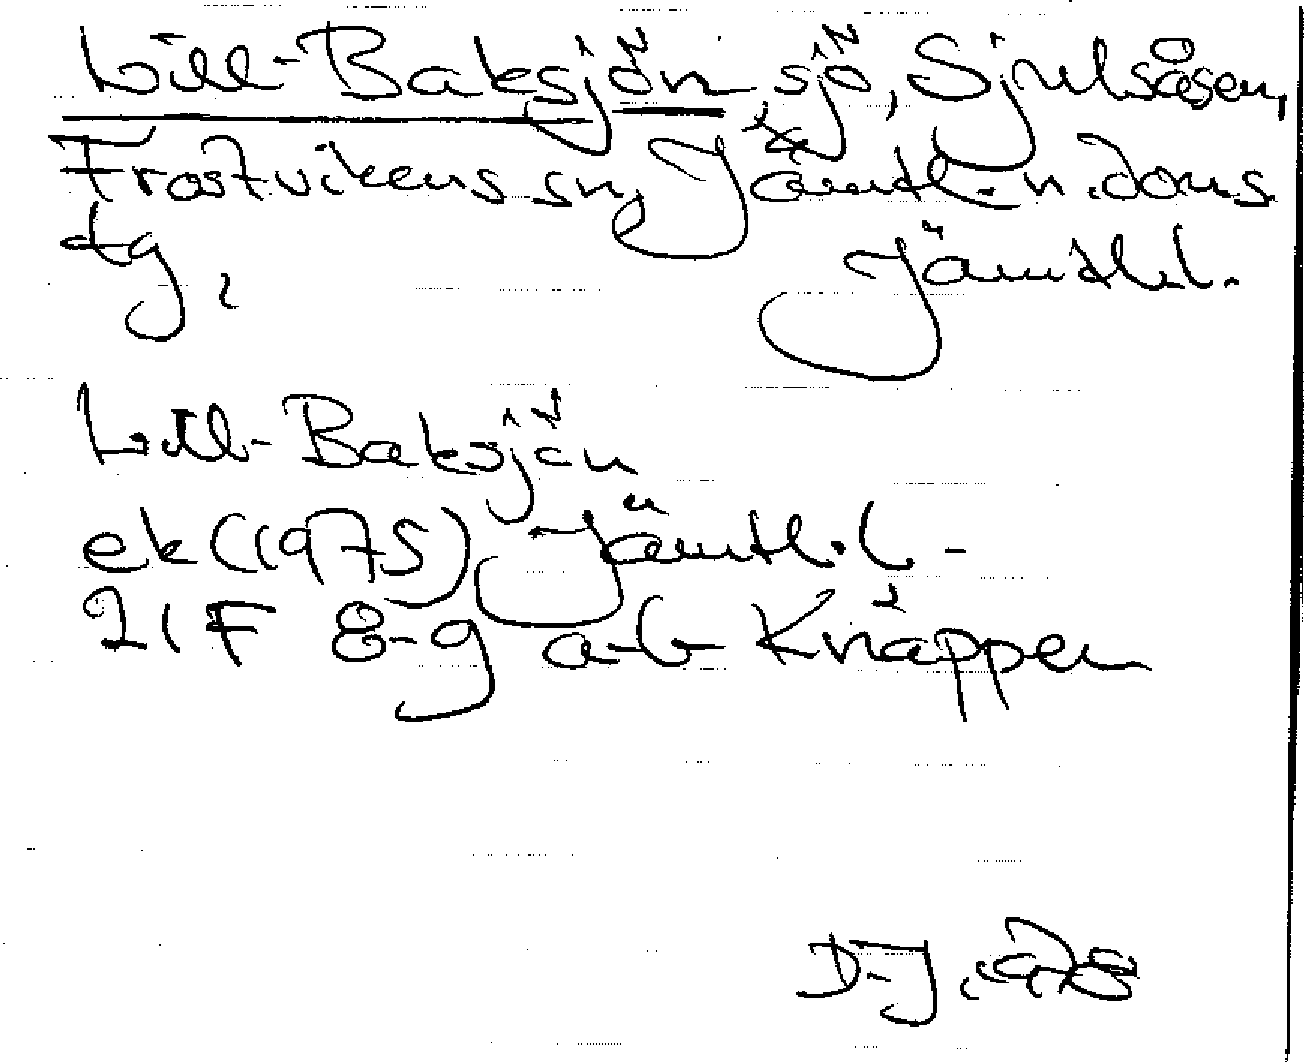 Lill-Baksjön, sjö, Sjulsåsen,
Frostvikens sn, Jämtl. n. doms
tg,
Jämtl. l.
Lill-Baksjön
ek (1975) Jämtl. l -
21F 8-g a-b Knäppen
D-J, 1978